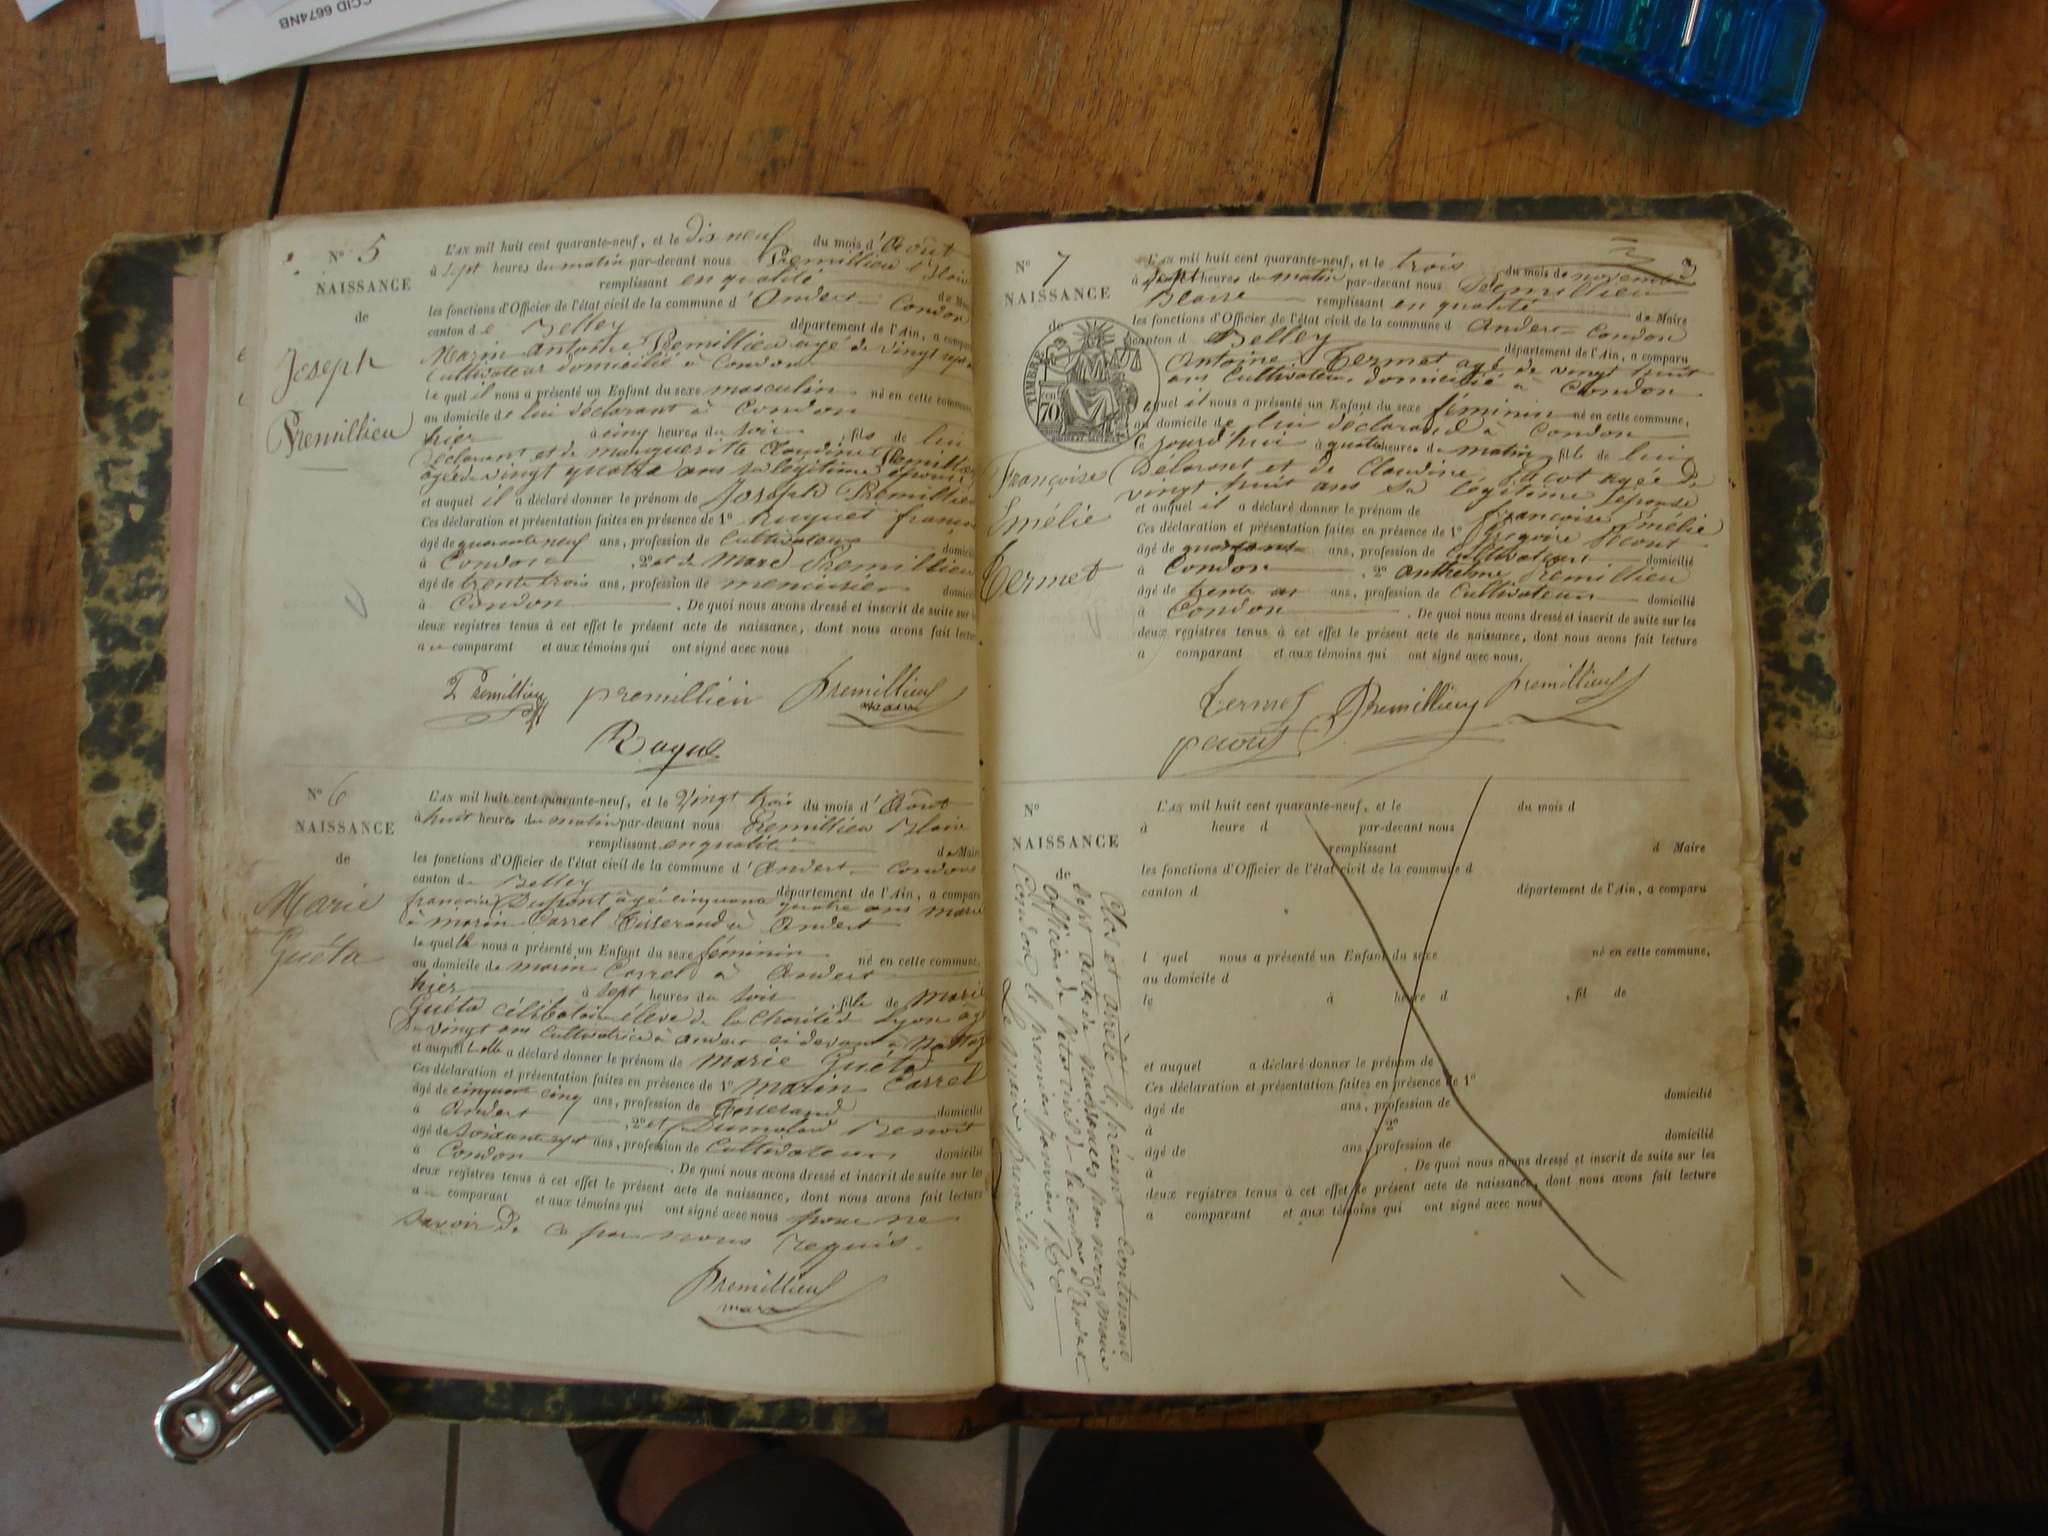 CCID 6674NB
N° 5
NAISSANCE
de
Joseph
Premillieu
L'AN mil huit cent quarante-neuf, et le dix neuf du mois d'Août
à sept heures du matin par-devant nous Premillieu Blaise
remplissant en qualité de Maire
les fonctions d'Officier de l'état civil de la commune d'Andert Condon
canton de Belley département de l'Ain, a comparu
Marin Antoine Premillieu agé de vingt sept ans
Cultivateur domicilié à Condon
lequel il nous a présenté un Enfant du sexe masculin né en cette commune,
au domicile de lui déclarant à Condon
hier à cinq heures du soir, fils de lui
Déclarant et de marguerite Claudine Premillieu
agée de vingt quatre ans sa légitime épouse
et auquel il a déclaré donner le prénom de Joseph Premillieu
Ces déclaration et présentation faites en présence de 1° huguet françois
âgé de quarante neuf ans, profession de Cultivateur domicilié
à Condon, 2° et de Marc Premillieu
âgé de trente trois ans, profession de menuisier domicilié
à Condon. De quoi nous avons dressé et inscrit de suite sur les
deux registres tenus à cet effet le présent acte de naissance, dont nous avons fait lecture
a comparant et aux témoins qui ont signé avec nous
Premillieu premillieu premillieu
maire
N° 6
NAISSANCE
de
Marie
Guéta
L'AN mil huit cent quarante-neuf, et le Vingt trois du mois d'Août
à huit heures du matin par-devant nous Premillieu Blaise
remplissant en qualité de Maire
les fonctions d'Officier de l'état civil de la commune d'Andert Condon
canton de Belley département de l'Ain, a comparu
françoise Dupont agé cinquante quatre ans marié
à marin Carrel Tisserand à Andert
lequelle nous a présenté un Enfant du sexe féminin né en cette commune,
au domicile de marin Carrel à Andert
hier à sept heures du soir, fille de Marie
Guéta célibataire élève de la Charité de Lyon agé
De vingt ans Cultivatrice à Andert ci devant à
et auquel elle a déclaré donner le prénom de marie Guéta
Ces déclaration et présentation faites en présence de 1° marin Carrel
âgé de cinquante cinq ans, profession de Tisserand domicilié
à Andert, 2° et Dumolard Benoit
âgé de soixante sept ans, profession de Cultivateur domicilié
à Condon. De quoi nous avons dressé et inscrit de suite sur les
deux registres tenus à cet effet le présent acte de naissance, dont nous avons fait lecture
a comparant et aux témoins qui ont signé avec nous pour ne
savoir de ce par nous requis.
premillieu
maire
3
N° 7
NAISSANCE
de
TIMBRE
70
Françoise
Emélie
Termet
L'AN mil huit cent quarante-neuf, et le trois du mois de novembre
à sept heures du matin par-devant nous Premillieu
Blaise remplissant en qualité de Maire
les fonctions d'Officier de l'état civil de la commune d Andert Condon
canton d Belley département de l'Ain, a comparu
Antoine Termet agé de vingt huit
ans Cultivateur domicilié à Condon
lequel il nous a présenté un Enfant du sexe féminin né en cette commune,
au domicile de lui déclarand à Condon
le jourd'hui à quatre heures du matin, fille de lui
Déclarant et de Claudine agée de
vingt huit ans sa légitime épouse
et auquel il a déclaré donner le prénom de françoise Emélie
Ces déclaration et présentation faites en présence de 1° Grégoire
âgé de quarante ans, profession de Cultivateur domicilié
à Condon, 2° Anthelme Premillieu
âgé de trente ans, profession de Cultivateur domicilié
à Condon. De quoi nous avons dressé et inscrit de suite sur les
deux registres tenus à cet effet le présent acte de naissance, dont nous avons fait lecture
a comparant et aux témoins qui ont signé avec nous.
termet Premillieu premillieu
N°
NAISSANCE
de
L'AN mil huit cent quarante-neuf, et le du mois d
à heure d par-devant nous
remplissant d Maire
les fonctions d'Officier de l'état civil de la commune d
canton d département de l'Ain, a comparu
l quel nous a présenté un Enfant du sexe né en cette commune,
au domicile d
le à heure d, fil de
et auquel a déclaré donner le prénom de
Ces déclaration et présentation faites en présence de 1°
âgé de ans, profession de domicilié
à, 2°
âgé de ans, profession de domicilié
à. De quoi nous avons dressé et inscrit de suite sur les
deux registres tenus à cet effet le présent acte de naissance, dont nous avons fait lecture
a comparant et aux témoins qui ont signé avec nous
Clos et arrêté le présent contenant
sept actes de naissances par nous maire
officier de l'état civil de la commune d'Andert
Condon le premier janvier 1850
Le maire premillieu